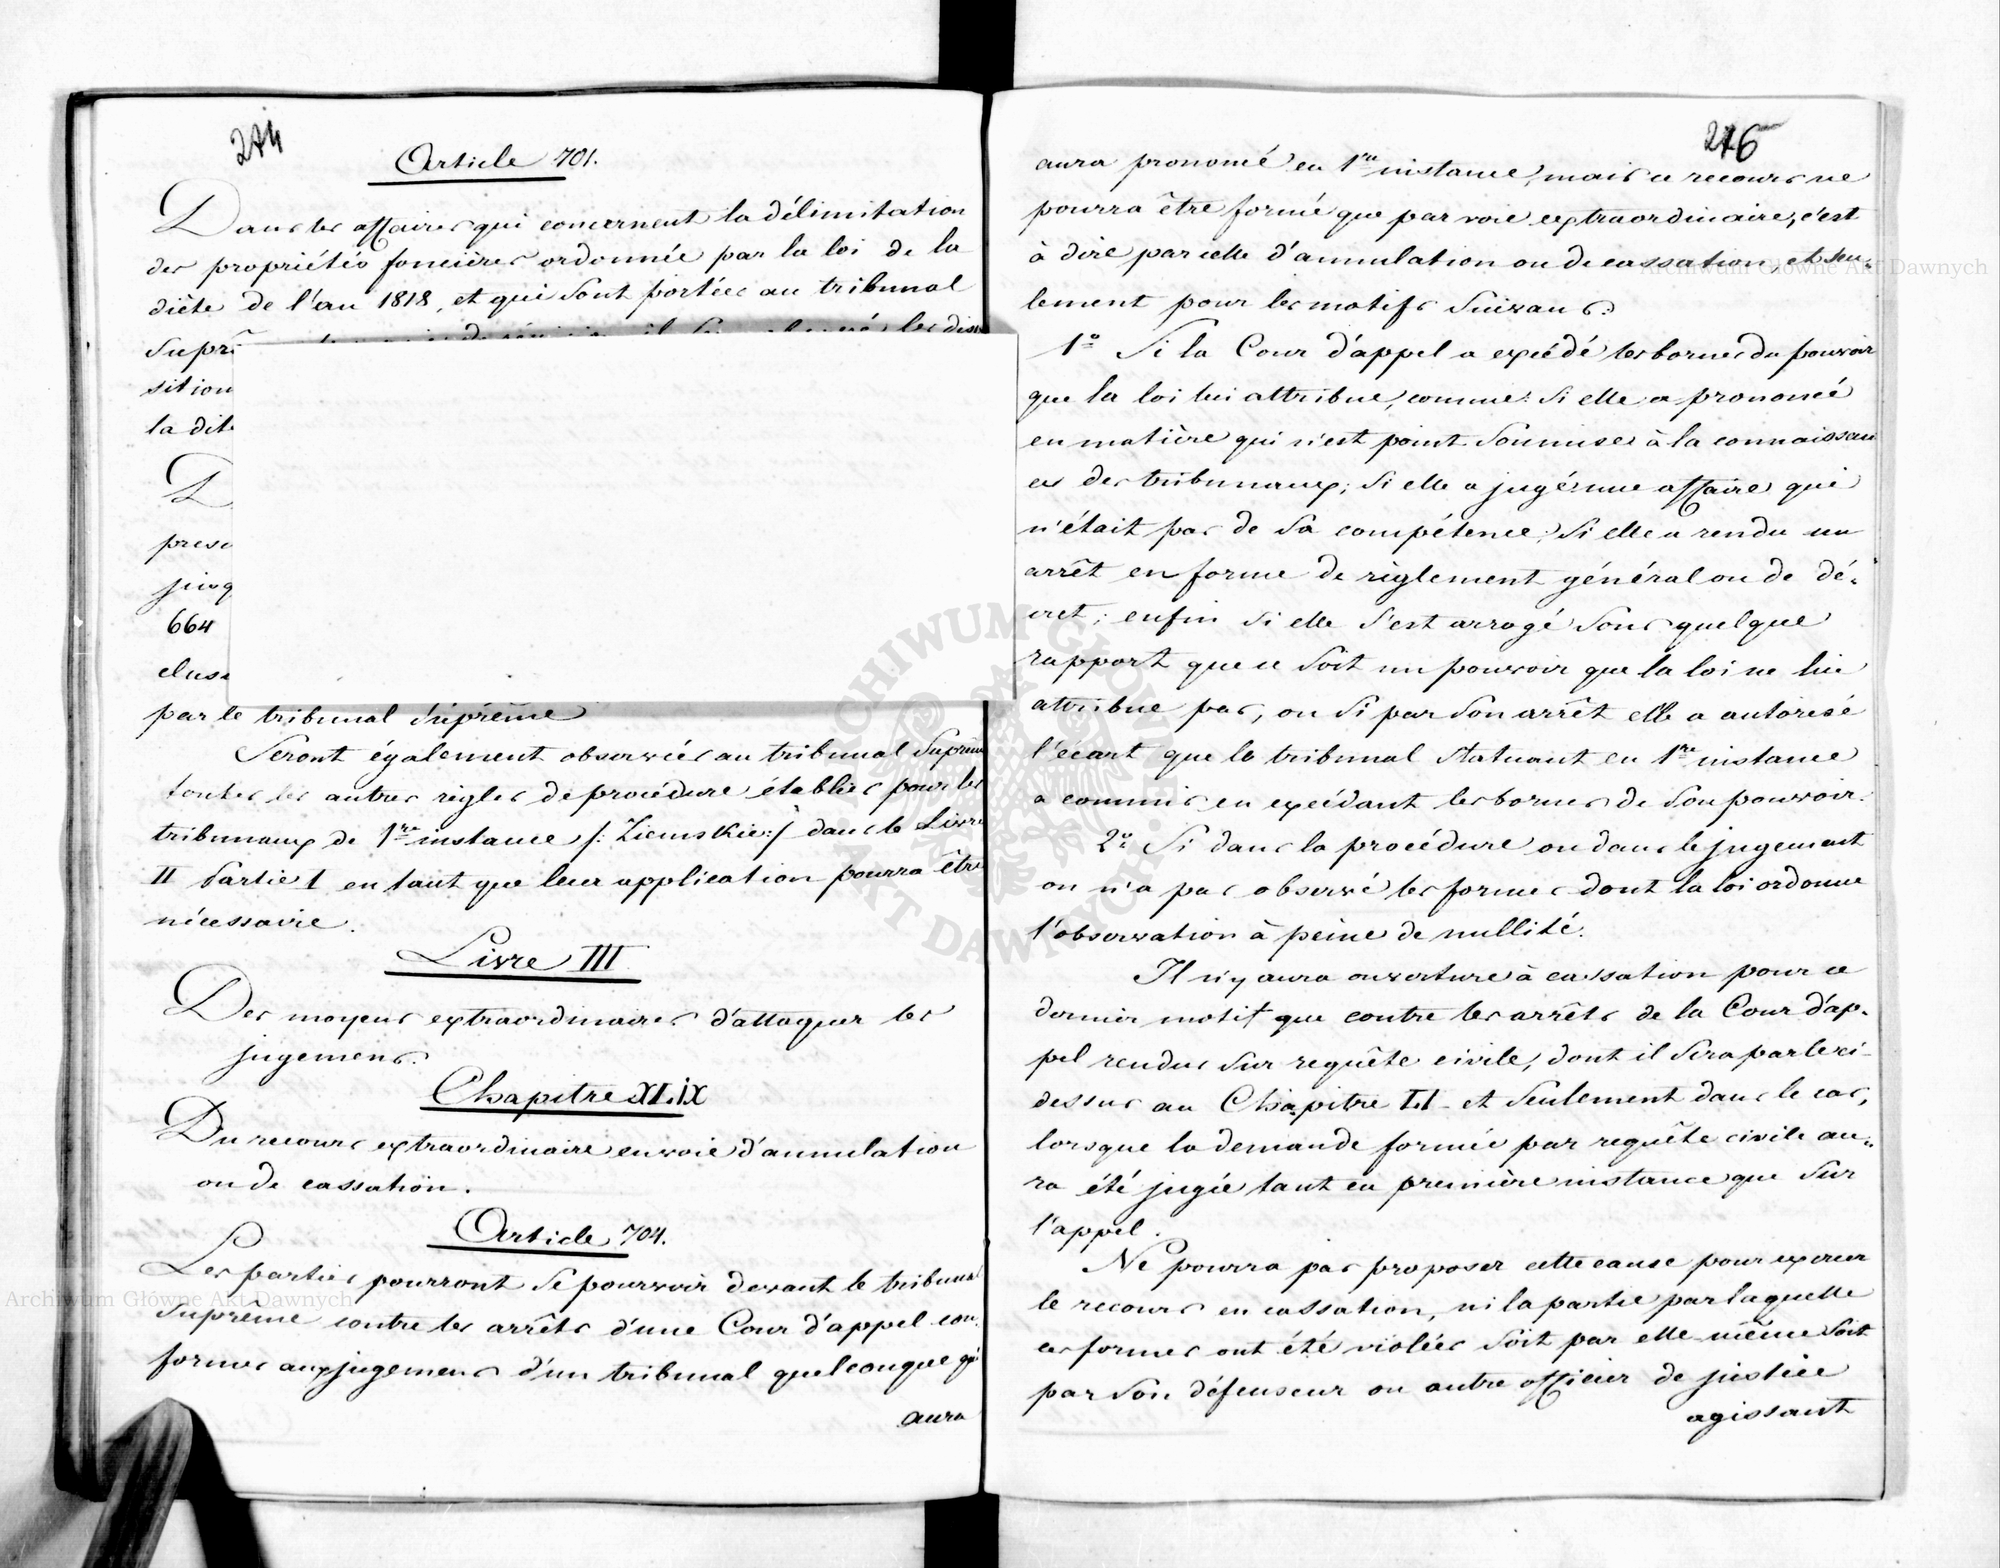 274
Article 701.
Dans les affaires qui concernent la délimitation
des propriétés foncières ordonnée par la loi de la
diète de l'an 1818, et qui sont portées au tribunal
Supr
sition
la dit
D
presc
jusq
664
cluse
par le tribunal suprême
Seront également observées au tribunal Suprême
toutes les autres règles de procédure établies pour les
tribunaux de 1re instance /: Ziemskie :/ dans le Livre
II Partie I en tant que leur application pourra être
nécessaire.
Livre III
Des moyens extraordinaires d'attaquer les
jugemens.
Chapitre XLIX
Du recours extraordinaire en voie d'annulation
ou de cassation.
Article 704.
Les parties pourront se pourvoir devant le tribunal
Suprême contre les arrêts d'une Cour d'appel con-
formes aux jugemens d'un tribunal quelconque qui
aura
276
aura prononcé en 1re instance, mais ce recours ne
pourra être formé que par voie extraordinaire, c'est
à dire par celle d'annulation ou de cassation, et seu-
lement pour les motifs suivans:
1o Si la Cour d'appel a excédé les bornes du pouvoir
que la loi lui attribue, comme: si elle a prononcé
en matière qui n'est point soumise à la connaissan
ce des tribunaux; si elle a jugé une affaire qui
n'était pas de sa compétence; si elle a rendu un
arrêt en forme de règlement général ou de dé-
cret; enfin si elle s'est arrogé sous quelque
rapport que ce soit un pouvoir que la loi ne lui
attribue pas, ou si par son arrêt elle a autorisé
l'écart que le tribunal statuant en 1re instance
a commis en excédant les bornes de son pouvoir.
2o Si dans la procédure ou dans le jugement
on n'a pas observé les formes dont la loi ordonne
l'observation à peine de nullité.
Il n'y aura ouverture à cassation pour ce
dernier motif que contre les arrêts de la Cour d'ap-
pel rendus sur requête civile, dont il sera parlé ci-
dessus au Chapitre LI et seulement dans le cas,
lorsque la demande formée par requête civile au-
ra été jugée tant en première instance que sur
l'appel.
Ne pourra pas proposer cette cause pour exercer
le recours en cassation, ni la partie par laquelle
ces formes ont été violées soit par elle même soit
par son défenseur ou autre officier de justice
agissant
Archiwum Główne Akt Dawnych
Archiwum Główne Akt Dawnych
ARCHIWUM GŁÓWNE AKT DAWNYCH